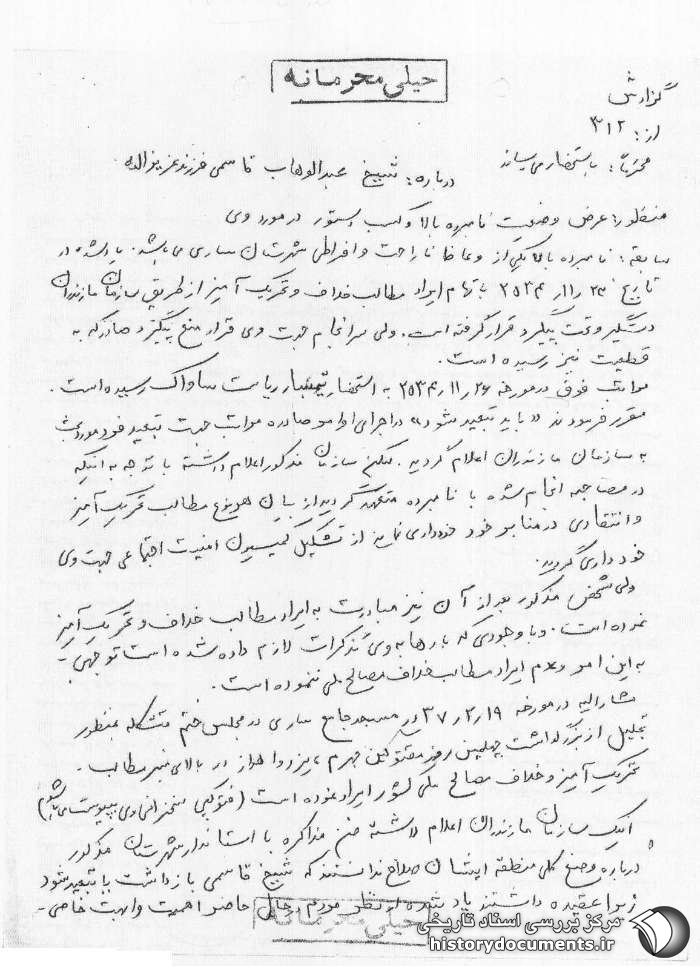 خیلی محرمانه
گزارش
از: ۳۱۲
محترماً، باستحضار میرساند
درباره: شیخ عبدالوهاب قاسمی فرزند عزیزالله
منظور: عرض وضعیت نامبرده بالا و کسب دستور در مورد وی
سابقه: نامبرده بالا یکی از وعاظ ناراحت و افراطی شهرستان ساری می باشد. یادشده در
تاریخ ۲۳/۱۱/۲۵۳۴ باتهام ایراد مطالب خلاف و تحریک آمیز از طریق سازمان مازندران
دستگیر و تحت پیگرد قرار گرفته است. ولی سرانجام جهت وی قرار منع پیگرد صادر که به
قطعیت نیز رسیده است.
مراتب فوق در مورخه ۲۶/۱۱/۲۵۳۴ به استحضار تیمسار ریاست ساواک رسیده است.
مقرر فرمودند «باید تبعید شود» در اجرای اوامر صادره مراتب جهت تبعید فرد مورد بحث
به سازمان مازندران اعلام گردید. لیکن سازمان مذکور اعلام داشته با توجه به اینکه
در مصاحبه انجام شده با نامبرده متعهد گردید از بیان هر نوع مطالب تحریک آمیز
و انتقادی در منابر خود خودداری نماید از تشکیل کمیسیون امنیت اجتماعی جهت وی
خودداری گردید.
ولی شخص مذکور بعد از آن نیز مبادرت به ایراد مطالب خلاف و تحریک آمیز
نموده است. و با وجودی که بارها به وی تذکرات لازم داده شده است توجهی -
به این امر و عدم ایراد مطالب خلاف مصالح ملی ننموده است.
مشارالیه در مورخه ۱۹/۲/۳۷ در مسجد جامع ساری در مجلس ختم متشکله بمنظور
تجلیل از بزرگداشت چهلمین روز مقتولین جهرم، یزد و اهواز در بالای منبر مطالب -
تحریک آمیز و خلاف مصالح ملی کشور ایراد نموده است (فتوکپی سخنرانی وی پیوست می باشد)
اینک سازمان مازندران اعلام داشته ضمن مذاکره با استاندار شهرستان مذکور
درباره وضع کلی منطقه ایشان صلاح ندانستند که شیخ قاسمی بازداشت یا تبعید شود
زیرا عقیده داشتند یاد شده از نظر مردم در حال حاضر اهمیت و ابهت خاصی -
خیلی محرمانه
مرکز بررسی اسناد تاریخی
historydocuments.ir